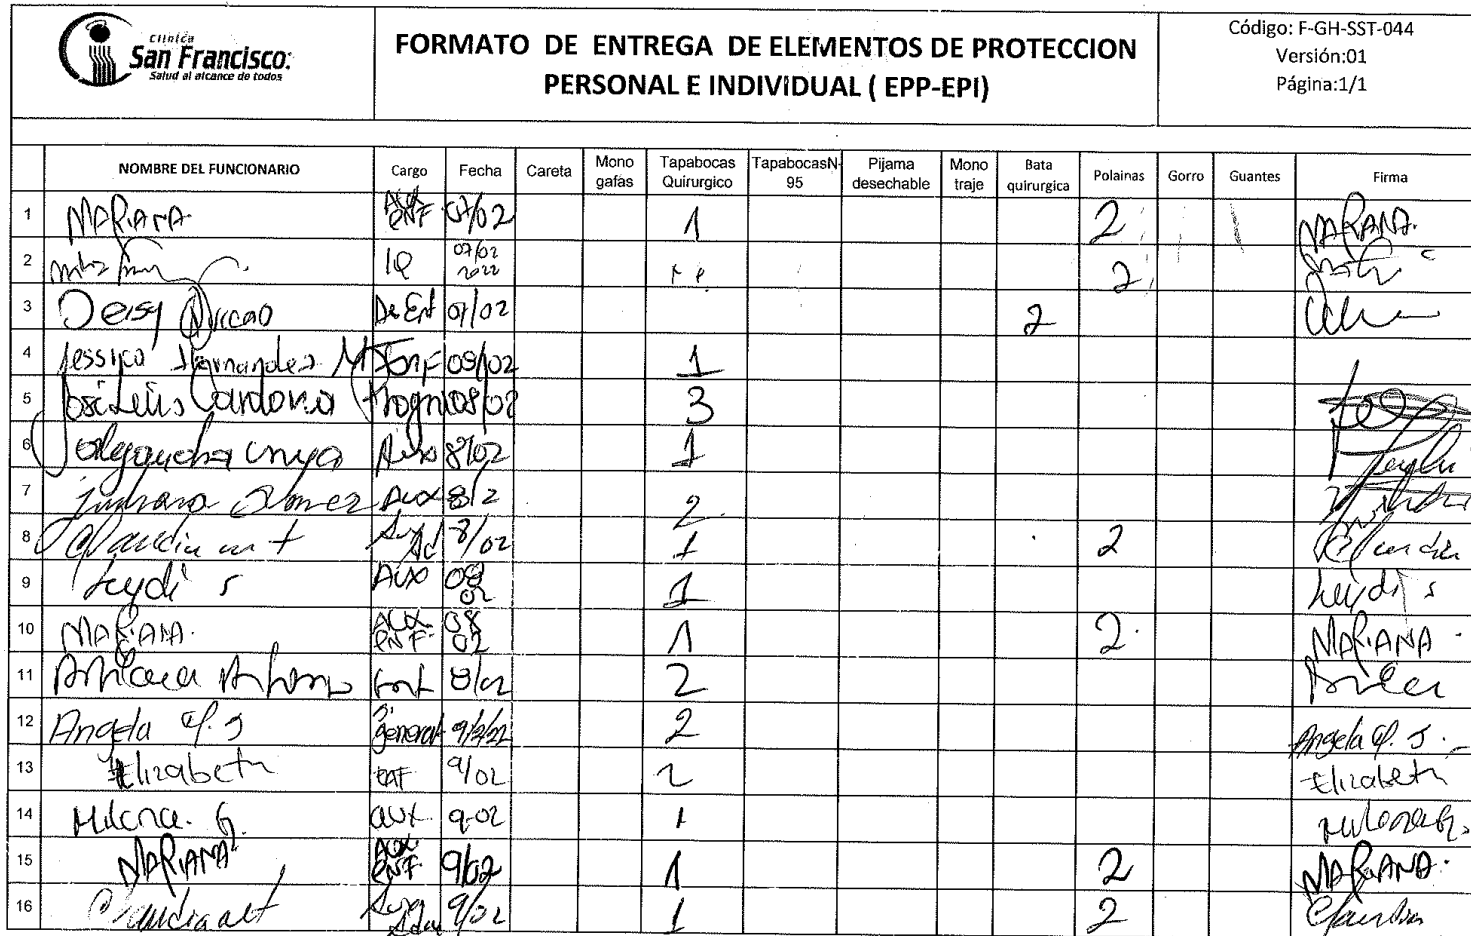 Clínica
San Francisco:
Salud al alcance de todos
FORMATO DE ENTREGA DE ELEMENTOS DE PROTECCION
PERSONAL E INDIVIDUAL ( EPP-EPI)
Código: F-GH-SST-044
Versión:01
Página:1/1
NOMBRE DEL FUNCIONARIO Cargo Fecha Careta Mono gafas Tapabocas Quirurgico TapabocasN-95 Pijama desechable Mono traje Bata quirurgica Polainas Gorro Guantes Firma
1 MARIANA. AUX ENF 07/02 1 2 MARIANA.
2 IQ 07/02 2022 2
3 Deisy 07/02 2
4 Jessica Hernandez M 08/02 1
5 José Luis Cardona 08/02 3
6 8/02 1
7 Aux 8/2 2
8 Claudia 8/02 1 2 Claudia
9 Leydi s Aux 08 02 1 Leydi s
10 MARIANA. AUX ENF. 08 02 1 2. MARIANA.
11 8/02 2
12 Angela general 9/2/22 2 Angela
13 Elizabeth 9/02 2 Elizabeth
14 Milena. G. aux. 9-02 1 Milena G.
15 MARIANA AUX ENF 9/02 1 2 MARIANA.
16 Claudia 9/02 1 2 Claudia